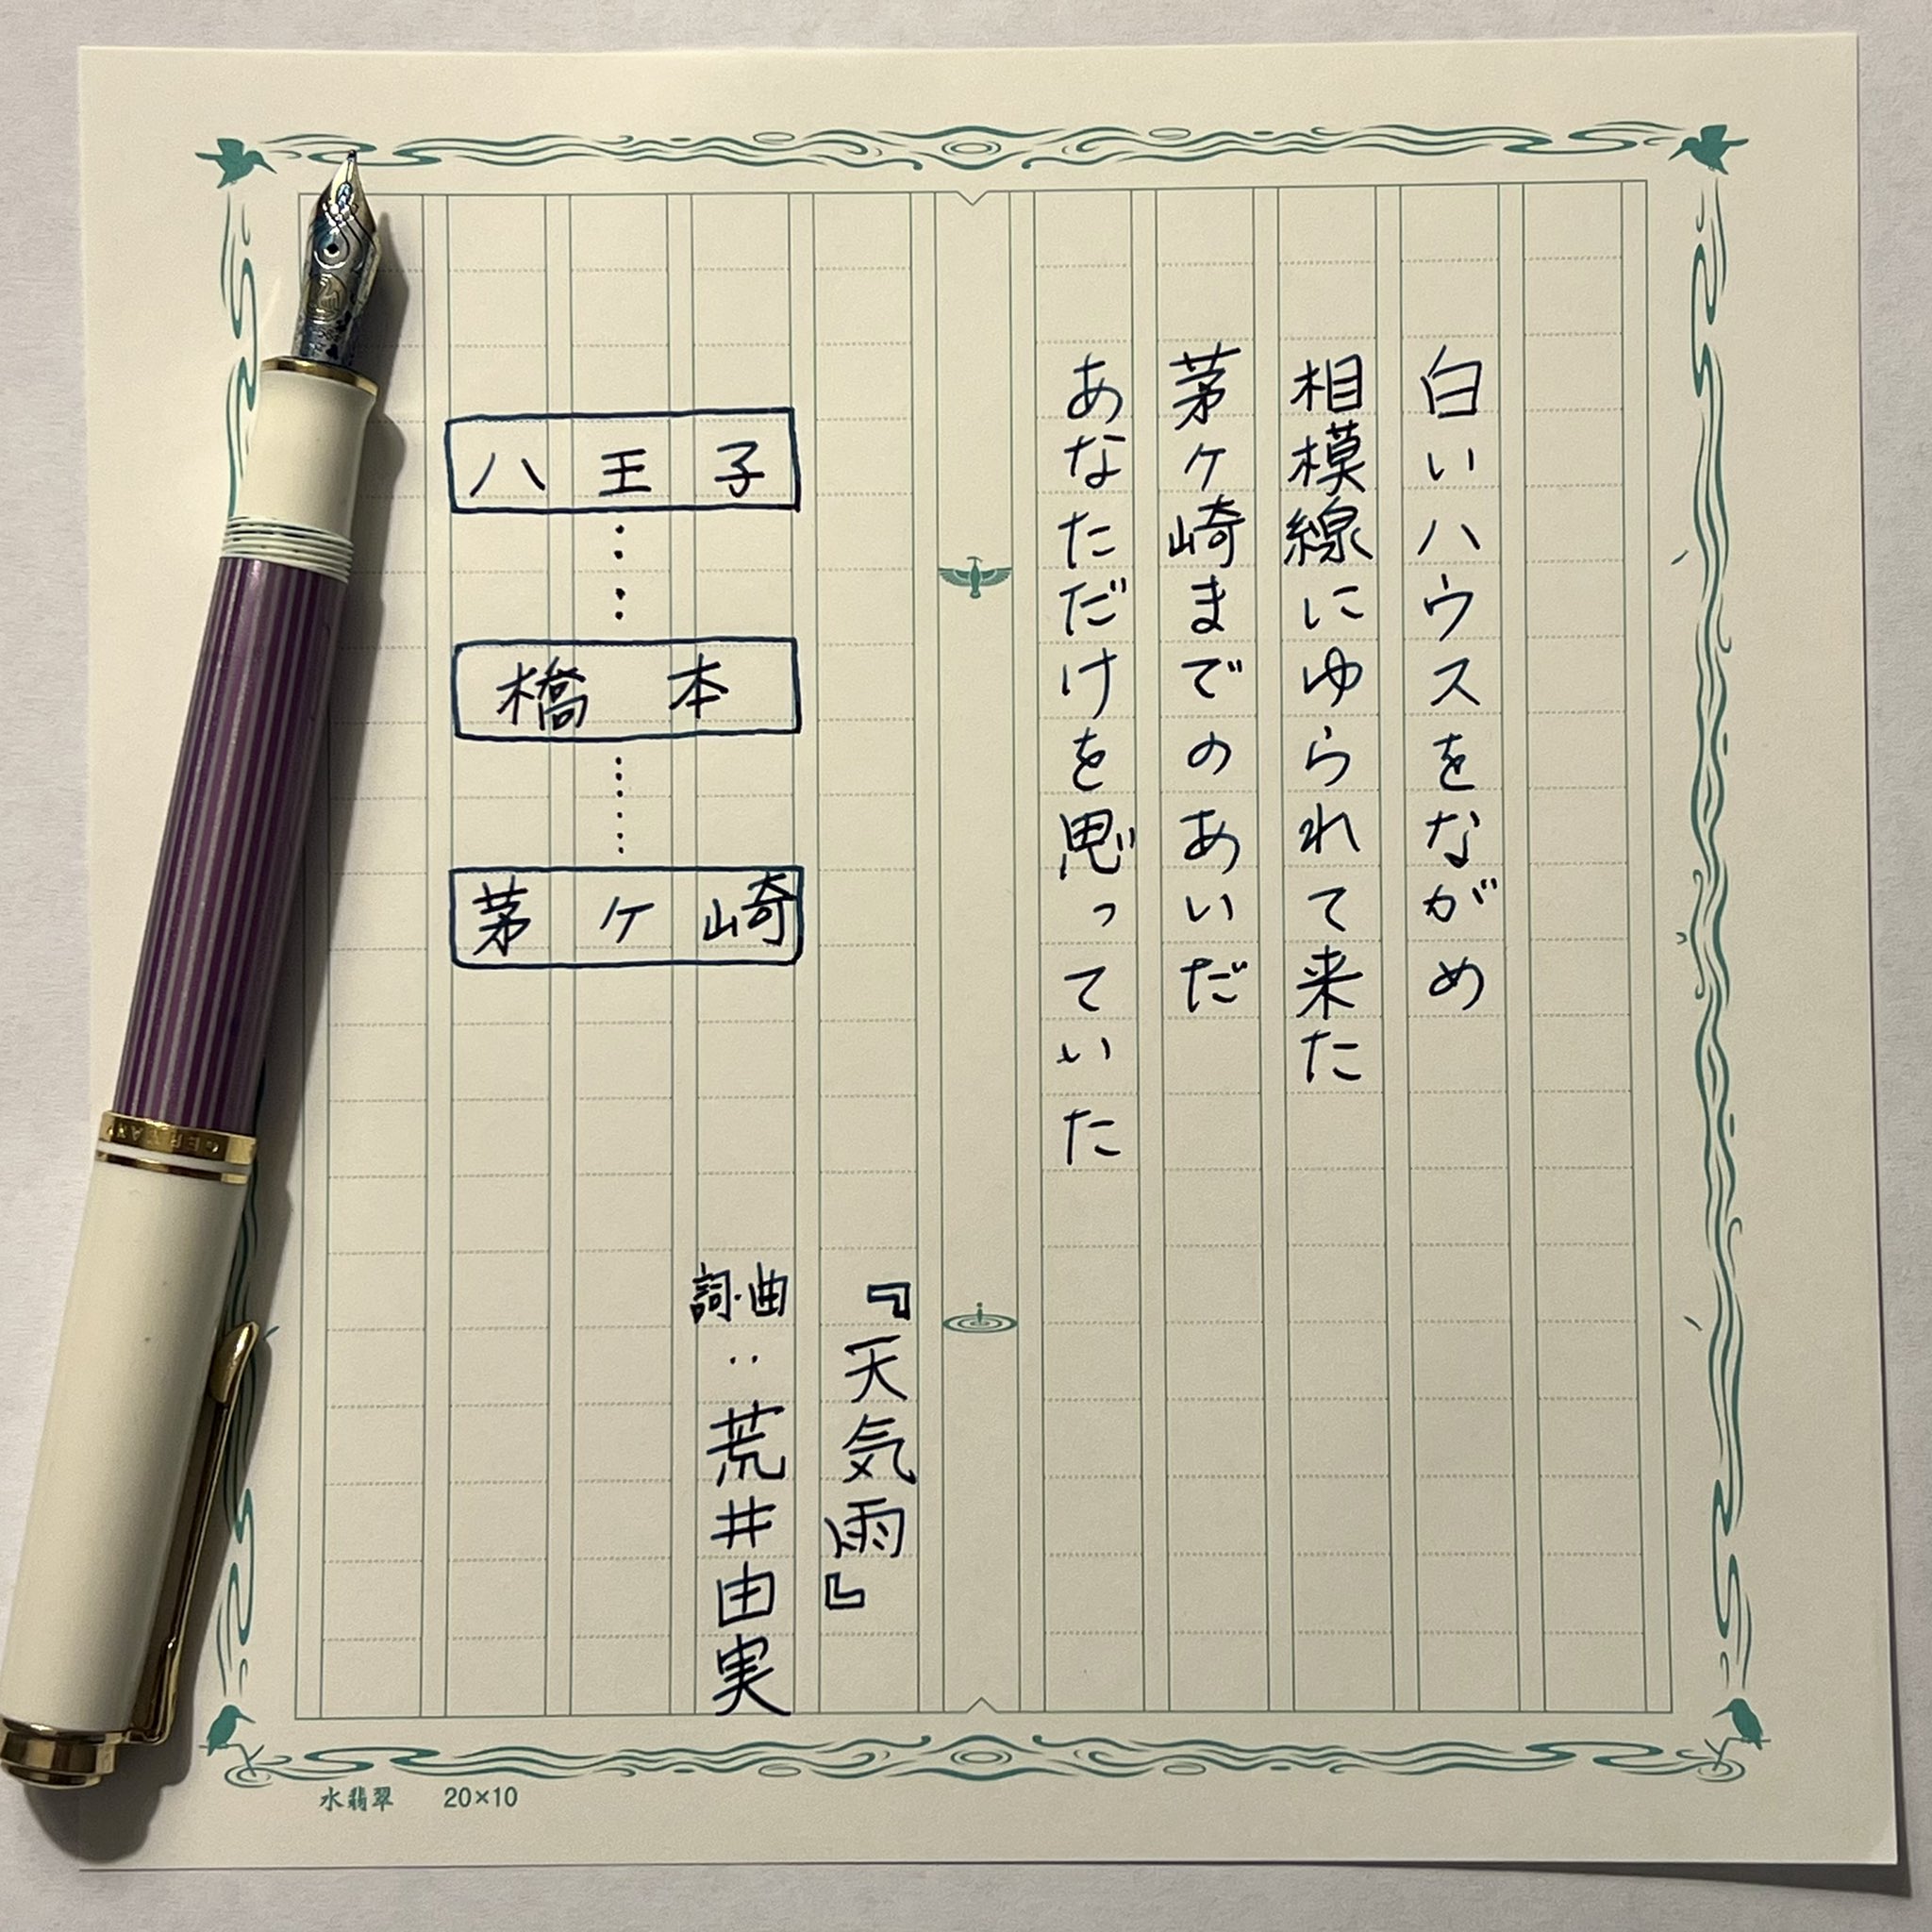 白いハウスをながめ
相模線にゆられて来た
茅ケ崎までのあいだ
あなただけを思っていた
『天気雨』
詞・曲：荒井由実
八王子
橋本
茅ケ崎
水翡翠 20×10
GERMANY